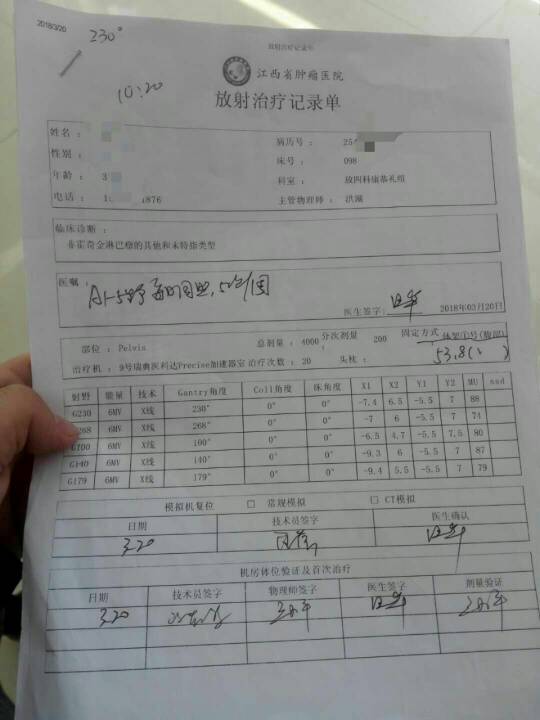 2018/3/20
230°
放射治疗记录单
江西省肿瘤医院
10:20
放射治疗记录单
姓名：
病历号： 25
性别：
床号： 098
年龄： 3
科室：
电话： 1 876
主管物理师：
临床诊断：
非霍奇金淋巴瘤的其他和未特指类型
医嘱：
医生签字： 2018年03月20日
部位： Pelvis 总剂量： 4000 分次剂量 200 固定方式
治疗机： 9号瑞典医科达Precise加速器室 治疗次数： 20 头枕：
射野 能量 技术 Gantry角度 Coll角度 床角度 X1 X2 Y1 Y2 MU ssd
G230 6MV X线 230° 0° 0° -7.4 6.5 -5.5 7 88
268 6MV X线 268° 0° 0° -7 6 -5.5 7 74
G100 6MV X线 100° 0° 0° -6.5 4.7 -5.5 7.5 80
G140 6MV X线 140° 0° 0° -9.3 6 -5.5 7 87
G179 6MV X线 179° 0° 0° -9.4 5.5 -5.5 7 79
模拟机复位 □ 常规模拟 □ CT模拟
日期 技术员签字 医生确认
3.20
机房体位验证及首次治疗
日期 技术员签字 物理师签字 医生签字 剂量验证
3.20